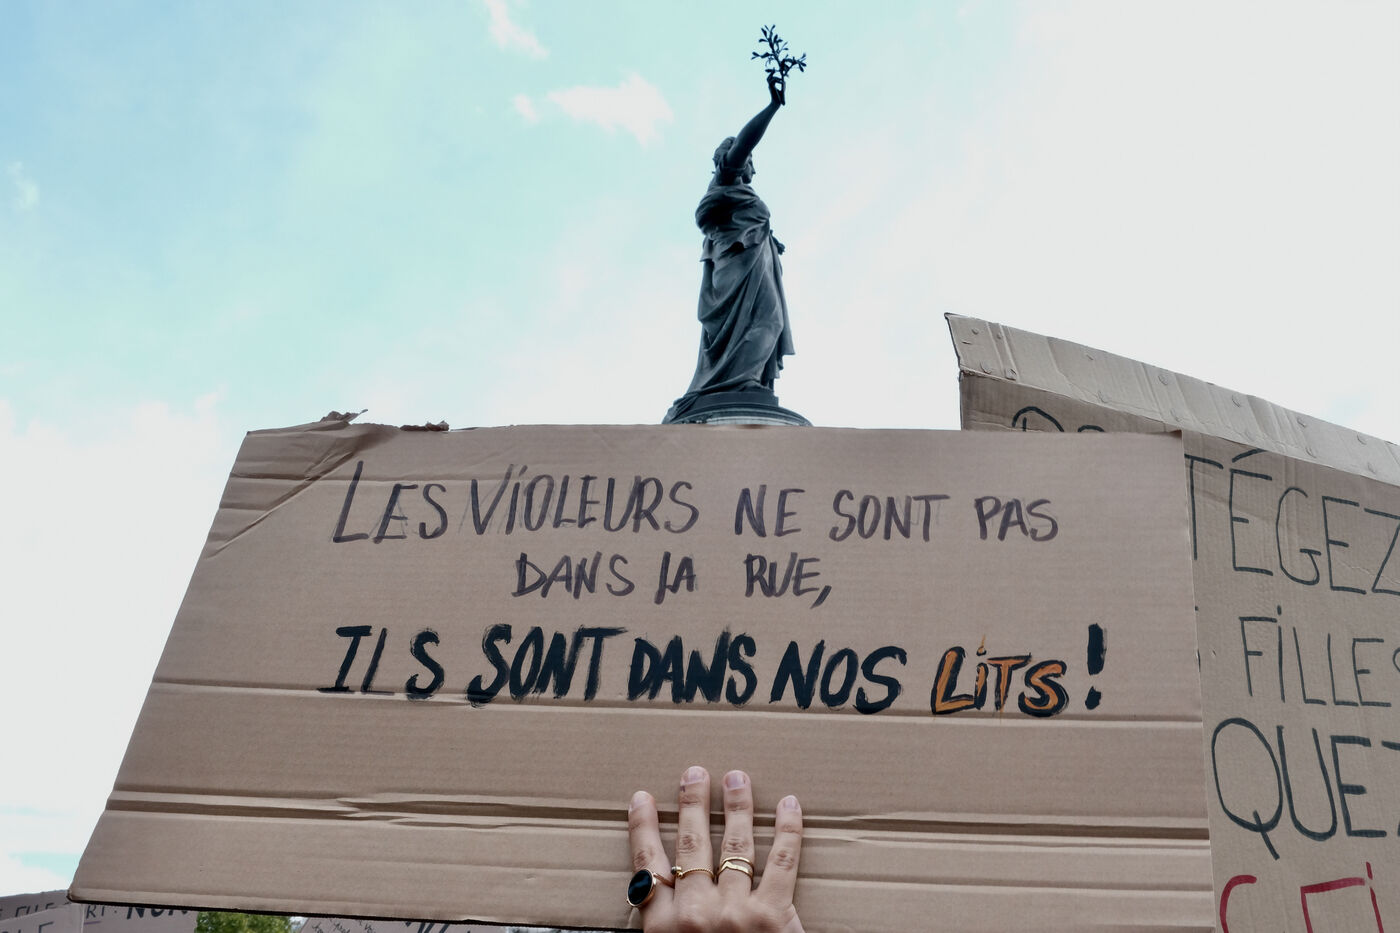 LES VIOLEURS NE SONT PAS
DANS LA RUE,
ILS SONT DANS NOS LITS !
TÉGEZ
FILLES
QUEZ